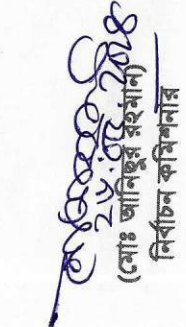 ২৮.০৫.২০২৪
(মোঃ আনিছুর রহমান)
নির্বাচন কমিশনার